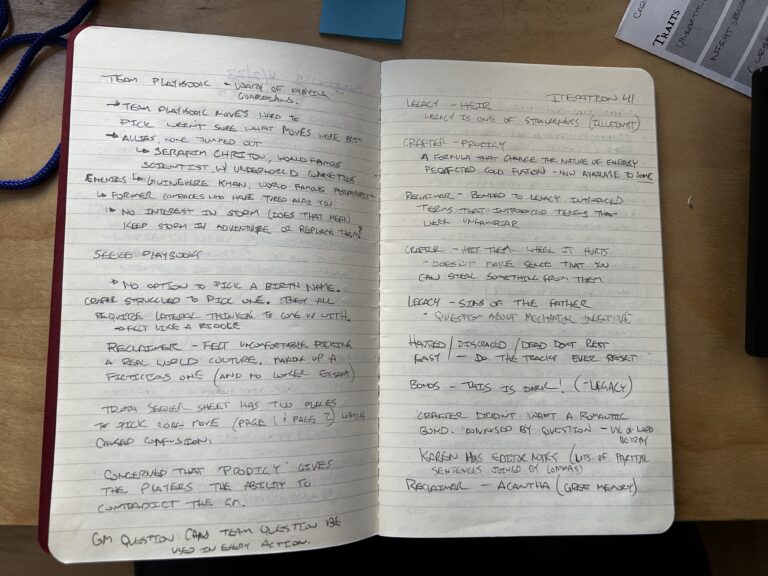 TEAM PLAYBOOK - WARY OF PLAYING
GUARDIANS.
→ TEAM PLAYBOOK MOVES HARD TO
PICK WEREN'T SURE WHAT MOVES WERE BEST
→ ALLIES, NONE JUMPED OUT
↳ SERAFIM CHRITOU, WORLD FAMOUS
SCIENTIST W/ UNDERWORLD CONNECTIONS
ENEMIES ↳ GUINEVERE KHAN, WORLD FAMOUS
↳ FORMER COMRADES WHO HAVE TURNED AGAINST YOU
↳ NO INTEREST IN STORM (DOES THAT MEAN
KEEP STORM IN ADVENTURE OR REPLACE THEM?
SEEKER PLAYBOOKS
→ NO OPTION TO PICK A BIRTH NAME.
CRAFTER STRUGGLED TO PICK ONE. THEY ALL
REQUIRE LATERAL THINKING TO COME UP WITH.
→ FELT LIKE A RIDDLE
RECLAIMER - FELT UNCOMFORTABLE PICKING
A REAL WORLD CULTURE. MAKING UP A
FICTICIOUS ONE (AND NO LONGER EXTANT)
TRUTH SEEKER SHEET HAS TWO PLACES
TO PICK MOVE (PAGE 1 & PAGE 2) WHICH
CAUSED CONFUSION.
CONCERNED THAT "PRODIGY" GIVES
THE PLAYERS THE ABILITY TO
CONTRADICT THE GM.
GM QUESTION: CAN TEAM QUESTION BE
USED IN EVERY ACTION.
ITERATION 41
LEGACY - HEIR
LEGACY IS ONE OF (ILLUSIONIST)
CRAFTER - PRODIGY
A FORMULA THAT CHANGE THE NATURE OF ENERGY
PERFECTED COLD FUSION - NOW AVAILABLE TO SOME
RECLAIMER - BONDED TO LEGACY INTRODUCED
TERMS THAT INTRODUCED TERMS THAT
WERE UNFAMILIAR
CRAFTER - HIT THEM WHERE IT HURTS
- DOESN'T MAKE SENSE THAT YOU
CAN STEAL SOMETHING FROM THEM
LEGACY - SINS OF THE FATHER
- QUESTION ABOUT MECHANICAL INCENTIVE
HATRED / DISGRACED / DEAD DON'T REST
EASY - DO THE TRACKS EVER RESET
BONDS - THIS IS DARK! (-LEGACY)
CRAFTER DIDN'T WANT A ROMANTIC
BOND. CONFUSED BY QUESTION - USE OF WORD
BETRAY
KAREN HAS EDITOR NOTES (LOTS OF PARTIAL
SENTENCES JOINED BY COMMAS)
RECLAIMER - ACANTHA (GREAT MEMORY)
TRAITS